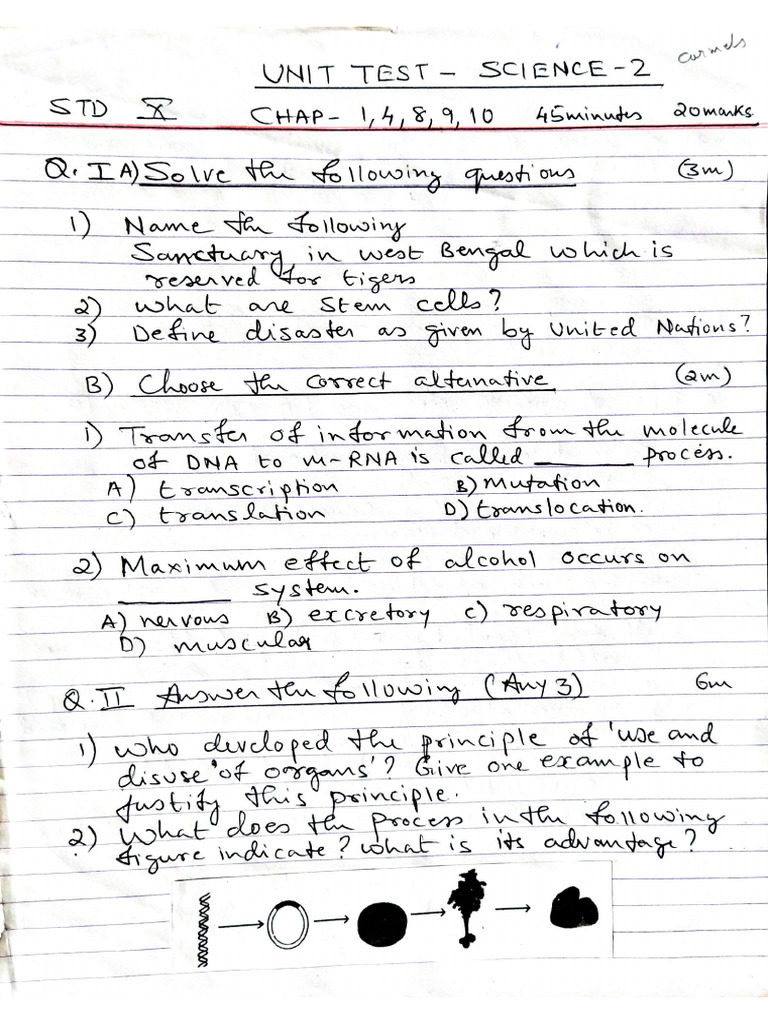 carmels
UNIT TEST - SCIENCE-2
STD X CHAP- 1,4,8,9,10 45minutes 20marks
Q.I A) Solve the following questions (3m)
1) Name the following
Sanctuary in west Bengal which is
reserved for tigers
2) What are stem cells?
3) Define disaster as given by United Nations?
B) Choose the correct alternative (2m)
1) Transfer of information from the molecule
of DNA to m-RNA is called ________ process.
A) transcription B) Mutation
C) translation D) translocation.
2) Maximum effect of alcohol occurs on
________ system.
A) nervous B) excretory C) respiratory
D) muscular
Q.II Answer the following (Any 3) 6m
1) Who developed the principle of 'use and
disuse 'of organs'? Give one example to
Justify this principle.
2) What does the process in the following
figure indicate? what is its advantage?